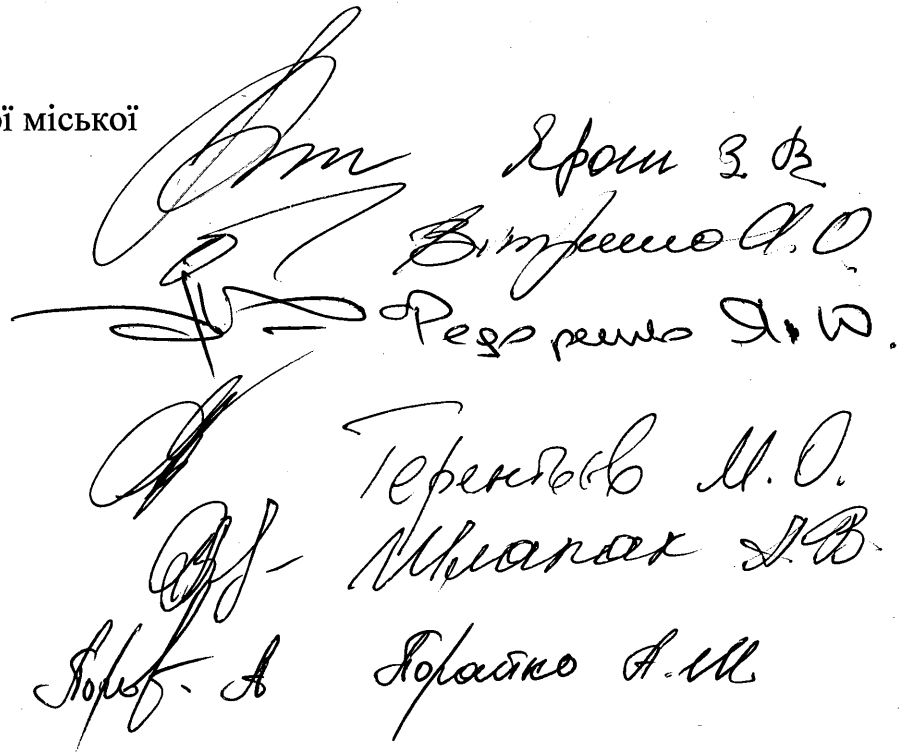 ї міської
Ярош З. В
Вітренко Я. О.
Федоренко Я. Ю.
Терентьєв М. О.
Шлапак А. В.
А. М.